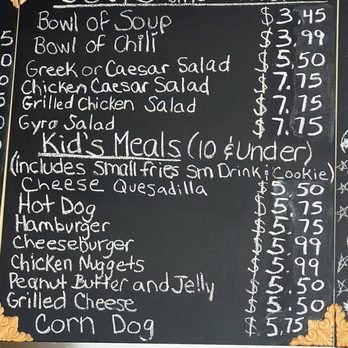 Bowl of Soup $3.45
Bowl of Chili $3.99
Greek or Caesar Salad $5.50
Chicken Caesar Salad $7.75
Grilled Chicken Salad $7.75
Gyro Salad $7.75
Kid's Meals (10 & under)
(includes small fries sm Drink & Cookie)
Cheese Quesadilla $5.50
Hot Dog $5.75
Hamburger $5.75
Cheeseburger $5.99
Chicken Nuggets $5.99
Peanut Butter and Jelly $5.50
Grilled Cheese $5.50
Corn Dog $5.75